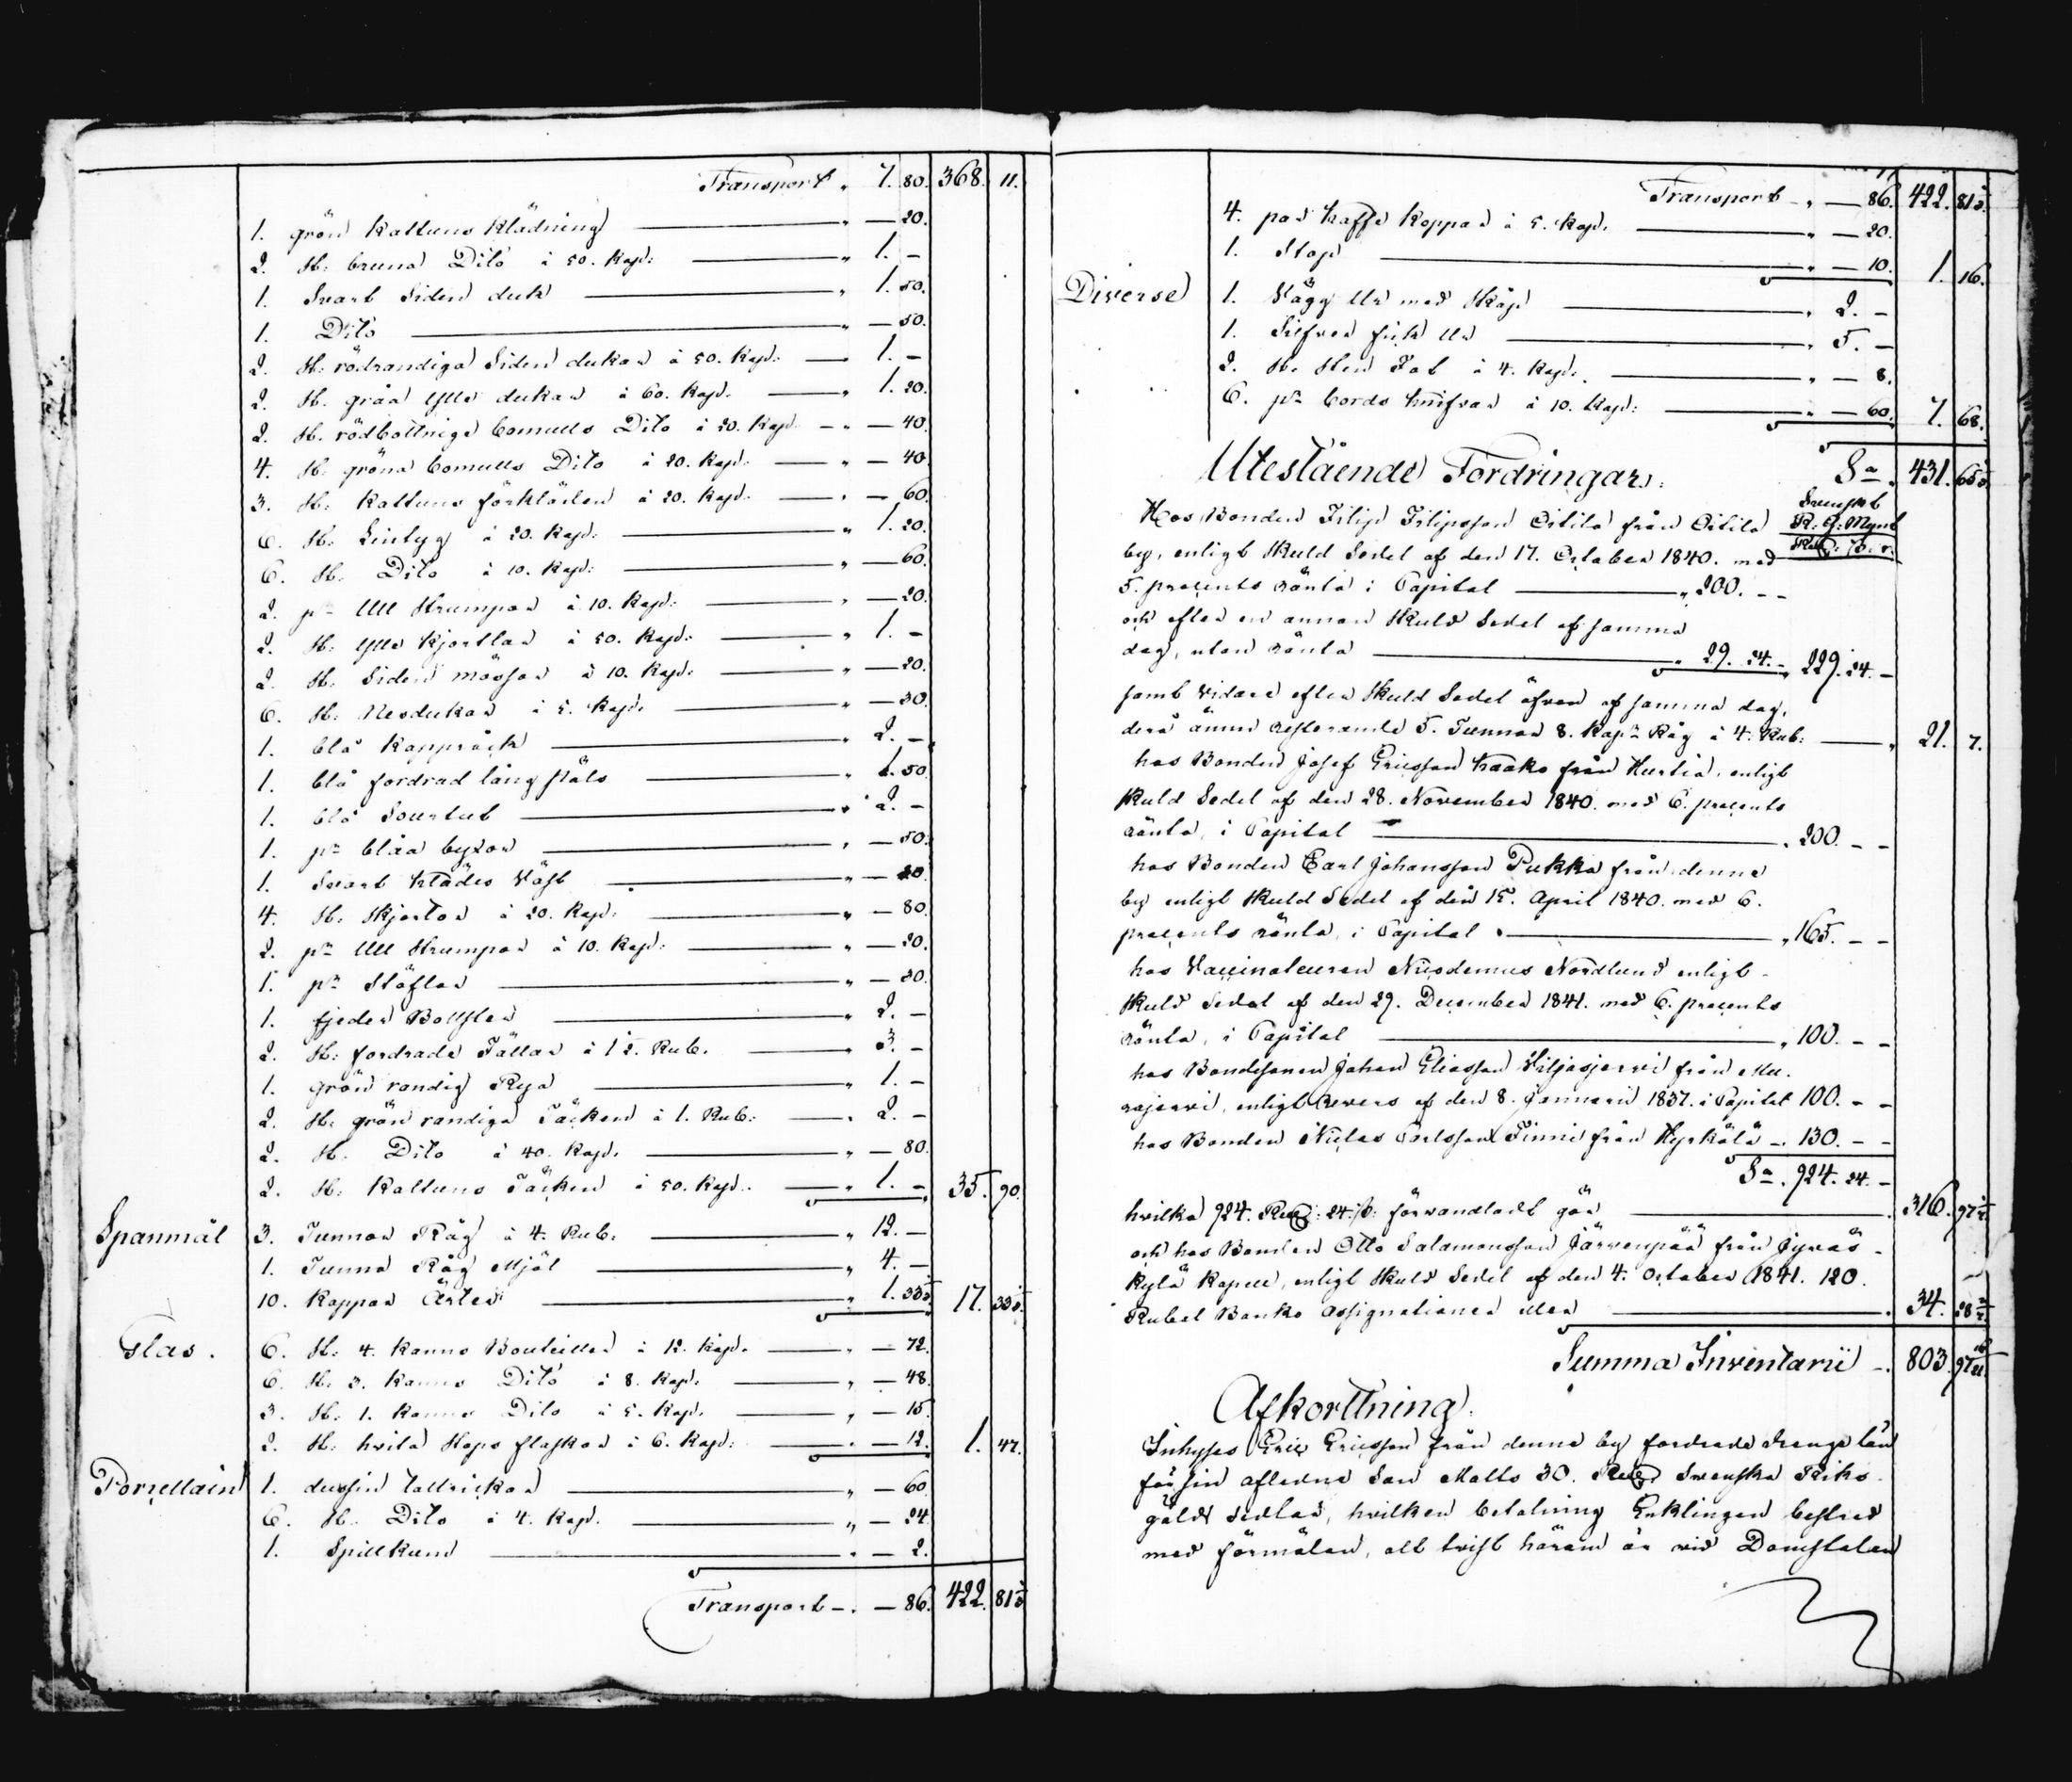 Transport „ 7. 80. 368. 11.
1. grön Kattuns klädning „ — 20.
2. St: bruna Dito à 50. Kop: „ 1. –
1. Svart Siden duk „ 1. 50.
1. Dito „ — 50.
2. St: rödrandiga Siden dukar à 50. Kop: „ 1. –
2. St. gråa ylle dukar à 60. Kop. „ 1. 20.
2. St. rödbottnige bomulls Dito à 20. Kop. „ — 40.
4. St: gröna bomulls Dito à 20. Kop: „ — 40.
3. St: Kattuns förkläden à 20. Kop: „ — 60.
6. St: Lintyg à 20. Kop: „ 1. 20.
6. St. Dito à 10. Kop: „ — 60.
2. pr Ull Strumpor à 10. Kop: „ — 20.
2. St: ylle kjortlar à 50. Kop: „ 1. –
2. St. Siden mössor à 10. Kop: „ — 20.
6. St: Nesdukar à 5. Kop. „ — 30.
1. blå Kapprock „ 2. –
1. blå fordrad lång päls „ 1. 50.
1. blå Sourtut „ 2. –
1. pr blåa byxor „ — 50.
1. Svart klädes Väst „ — 20.
4. St: Skjortor à 20. Kop: „ — 80.
2. pr Ull Strumpor à 10. Kop: „ — 20.
1. pr Stöflar „ — 20.
1. fjeder Bollster „ 2. –
2. St: fordrade Fällar à 1½. Rub. „ 3. –
1. grön randig Rya „ 1. –
2. St: grön randiga Täcken à 1. Rub: „ 2. –
2. St. Dito à 40. Kop. „ — 80.
2. St: Kattuns Täcken à 50. Kop. „ 1. – 35. 90.
Spanmål 3. Tunnor Råg à 4. Rub. „ 12. –
1. Tunna Råg Mjöl „ 4. –
10. Kappar Ärter „ 1. 33⅓. 17. 33⅓.
Glas. 6. St: 4. Kanns Bouteiller à 12. Kop. „ — 72.
6. St: 3. Kanns Dito à 8. Kop. „ — 48.
3. St: 1. Kanns Dito à 5. Kop. „ — 15.
2. St: hvita Stops flaskor à 6. Kop: „ — 12. 1. 47.
Porcellain 1. dussin tallrickar „ — 60.
6. St. Dito à 4. Kop. „ — 24.
1. Spillkum „ — 2.
Transport „ — 86. 422. 81⅓
Transport „ — 86. 422. 81⅓.
4. par kaffe koppar à 5. Kop. „ — 20.
1. Stop „ — 10. 1. 16.
Diverse 1. Vägg Ur med Skåp „ 2. –
1. Silfver fick Ur „ 5. –
2. St. Sten Fat à 4. Kop. „ — 8.
6. pr bords knifvar à 10. Kop: „ — 60. 7. 68.
Utestående Fordringar. Sa. 431. 65⅓
Svenskt
R: G: Mynt
Hos Bonden Filip Filipsson Oitila från Oitila
by, enligt Skuld Sedel af den 17. October 1840. med
5. procents ränta i Capital „ 200. – –
och efter en annan Skuld Sedel af samma
dag, utan ränta „ 29. 24. – „ 229. 24. –
samt vidare efter Skuld Sedel äfven af samma dag,
derå ännu resterande 5. Tunnor 8. kapr Råg à 4. Rub: „ 21. 7.
hos Bonden Josef Ericsson Kaako från Hurtia, enligt
Skuld Sedel af den 28. November 1840. med 6. procents
ränta, i Capital „ 200. – –
hos Bonden Carl Johansson Pukka från denne
by enligt Skuld Sedel af den 15. April 1840. med 6.
procents ränta, i Capital „ 165. – –
hos Vaccinateuren Nicodemus Nordlund enligt
Skuld Sedel af den 29. December 1841. med 6. procents
ränta, i Capital „ 100. – –
hos Bondesonen Johan Eliasson Viljasjervi från Mu-
rajervi, enligt Revers af den 8. Januarii 1837. i Capital 100. – –
hos Bonden Niclas Carlsson Finni från Hyrkölä – 130. – –
Sa. 924. 24. –
hvilka 924. 24. förvandladt gör 316. 97½
och hos Bonden Otto Salamonsson Järvenpää från Jyväs-
kylä Kapell, enligt Skuld Sedel af den 4. October 1841. 120.
Rubel Banko Assignationer eller 34. 28
Summa Inventarii – 803. 97
Afkorttning.
Inhyses Eric Ericsson från denne by fordrade drenge lön
för sin aflidne Son Matts 30. Svenska Riks-
gälds Sedlar, hvilken betalning Enklingen bestred
med förmälan, att tvist härom är vid Domstolen